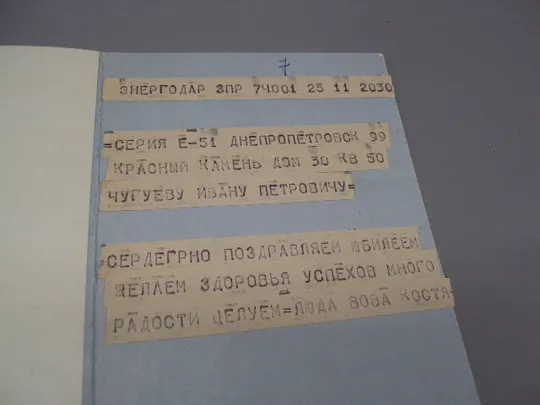 7
ЭНЕРГОДАР ЗПР 74001 25 11 2030
=СЕРИЯ Е-51 ДНЕПРОПЕТРОВСК 99
КРАСНЫЙ КАМЕНЬ ДОМ 30 КВ 50
ЧУГУЕВУ ИВАНУ ПЕТРОВИЧУ=
СЕРДЕГРНО ПОЗДРАВЛЯЕМ ЮБИЛЕЕМ
ЖЕЛАЕМ ЗДОРОВЬЯ УСПЕХОВ МНОГО
РАДОСТИ ЦЕЛУЕМ=ЛЮДА ВОВА КОСТЯ